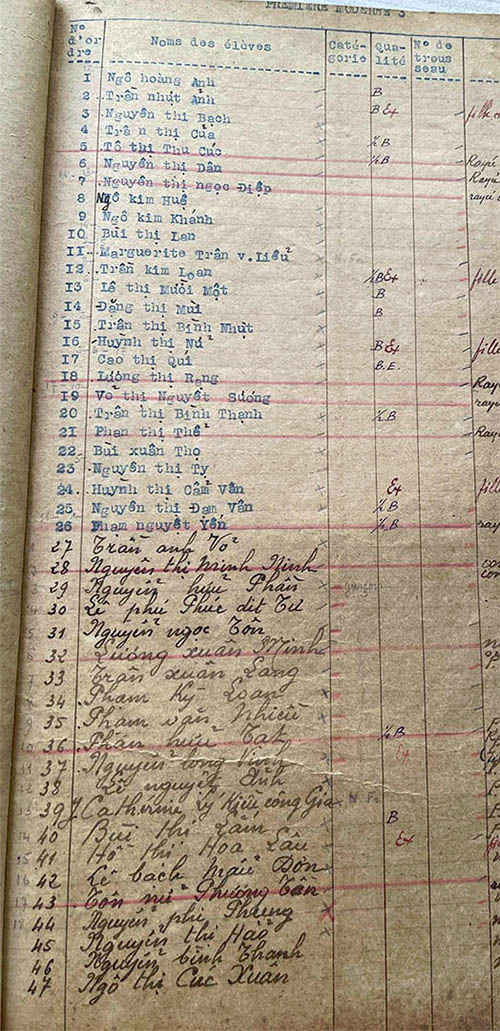 PREMIERE MODERNE 3
N° d'or dre Noms des élèves Caté- gorie Qua- lité N° de trous seau
1 Ngô hoàng Anh
2 Trần nhựt Ánh B
3 Nguyễn thị Bạch B Ex fille
4 Trần thị Của
5 Tô thị Thu Cúc ½B
6 Nguyễn thị Dần ½B Rayé
7 Nguyễn thị ngọc Điệp Rayé
8 Ngô kim Huệ rayé
9 Ngô kim Khánh
10 Bùi thị Lan
11 Marguerite Trần v. Liểu
12 Trần kim Loan ½B Ex fille
13 Lê thị Mười Một B
14 Đặng thị Mùi B
15 Trần thị Bình Nhựt
16 Huỳnh thị Nữ B Ex fille
17 Cao thị Quí B.E.
18 Lương thị Rạng Rayé
19 Võ thị Nguyệt Sương rayé
20 Trần thị Bình Thạnh ½B
21 Phan thị Thể Rayé
22 Bùi xuân Thọ
23 Nguyễn thị Tỵ
24 Huỳnh thị Cẩm Vân Ex fille
25 Nguyễn thị Đạm Vân ½B
26 Phạm nguyệt Yến ½B
27 Trần anh Võ
28 Nguyễn thị Minh Ninh
29 Nguyễn hữu Phần garçon
30 Lê phu Phúc dit Tư
31 Nguyễn ngọc Tôn
32 Lương xuân Minh
33 Trần xuân Lang
34 Phạm Kỳ Loan
35 Phạm văn Nhiều
36 Phan hữu Tất ½B
37 Nguyễn long Vinh Ex
38 Lê nguyệt Ánh
39 J. Catherine Lý Kiều công Gia N.F.
40 Bùi thị Lắm B
41 Hồ thị Hoa Lâu Ex
42 Lê bạch Mẫu Đơn
43 Tôn nữ Phương Tần
44 Nguyễn phi Phụng
45 Nguyễn thị Hảo
46 Nguyễn bình Thanh
47 Ngô thị Cúc Xuân